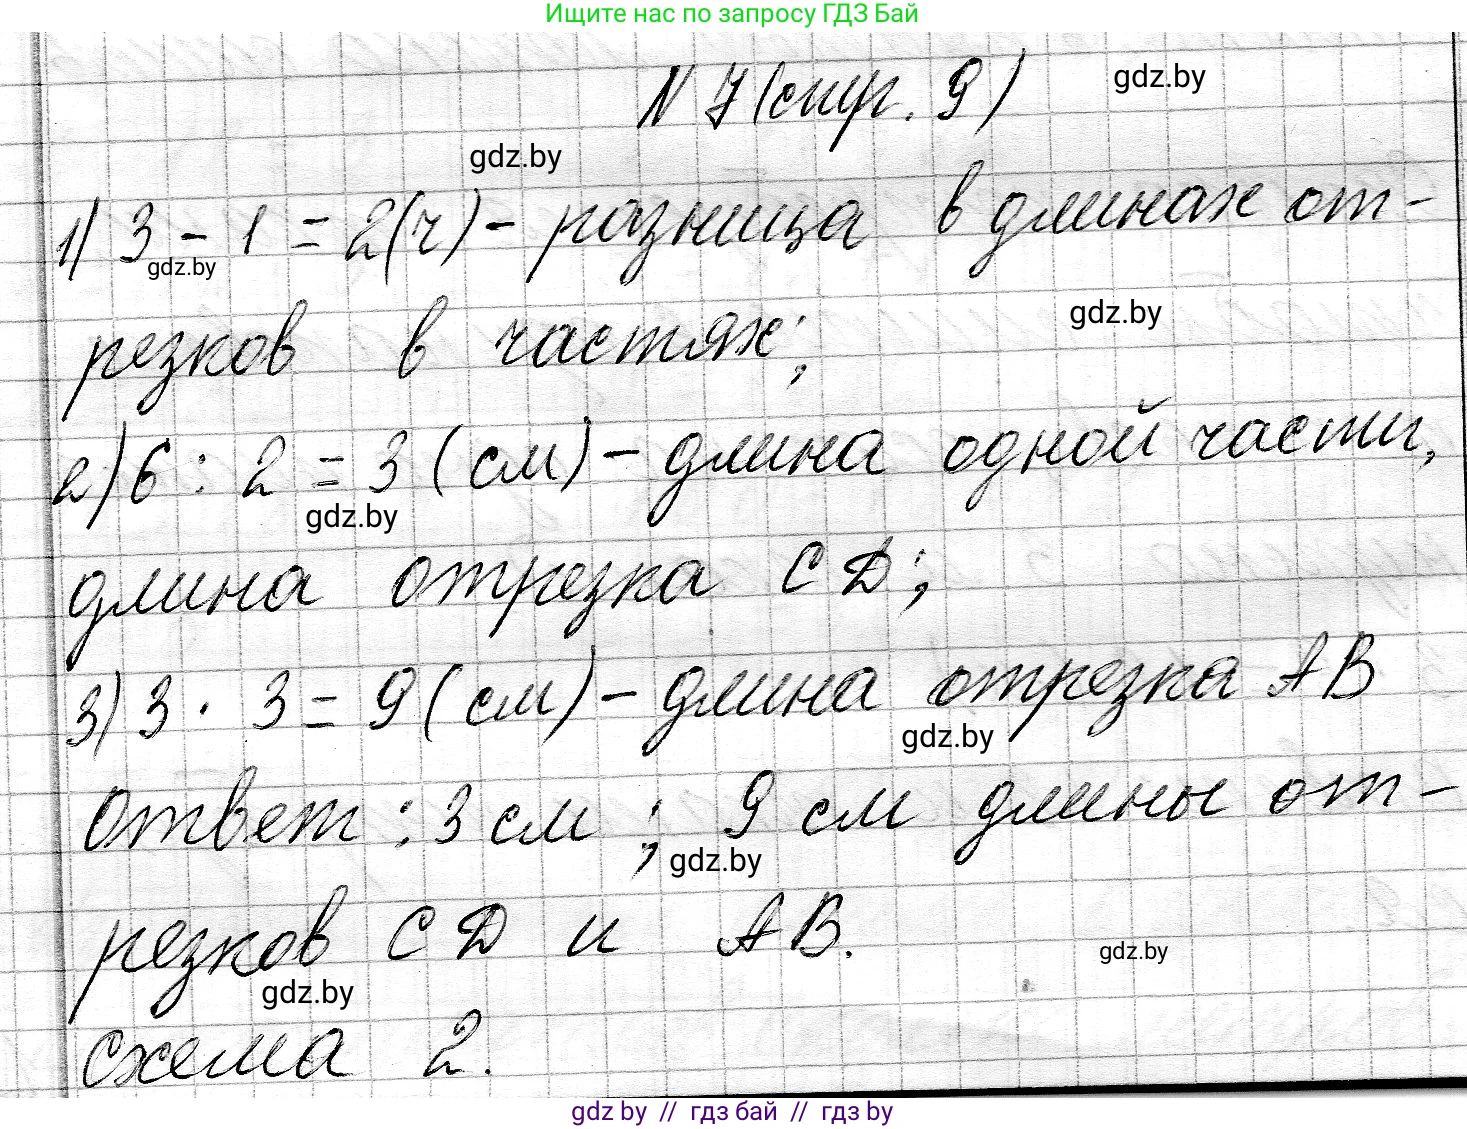 Ищите нас по запросу ГДЗ Бай
N 7 (стр. 9)
gdz.by
gdz.by
1) 3 - 1 = 2(ч) - разница в длинах от-
gdz.by
gdz.by
резков в частях;
2) 6 : 2 = 3 (см) - длина одной части,
gdz.by
длина отрезка CD;
3) 3 · 3 = 9 (см) - длина отрезка AB
gdz.by
ответ : 3 см ; 9 см длины от-
gdz.by
резков CD и AB.
gdz.by
gdz.by
схема 2.
gdz by // гдз бай // гдз by